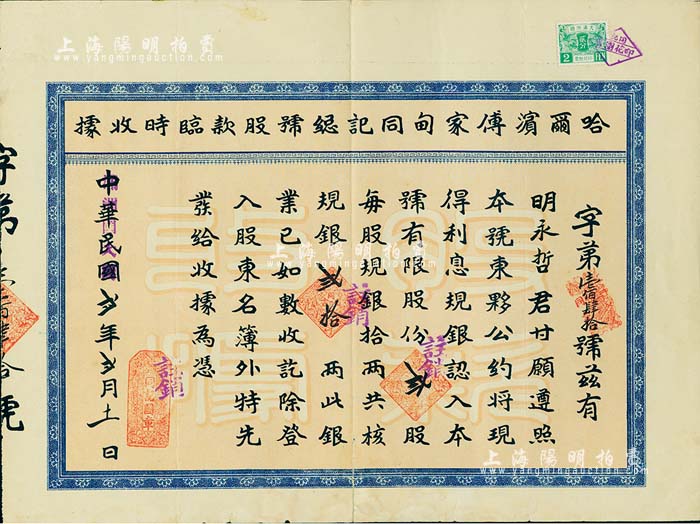 上海陽明拍賣
www.yangmingauction.com
2
哈爾濱傅家甸同記總號股款臨時收據
字第壹佰肆拾號茲有
明永哲君甘願遵照
本號東夥公約將現
得利息現銀認入本
號有限股份貳股
每股規銀拾兩共核
規銀貳拾兩此銀
業已如數收訖除登
入股東名簿外特先
發給收據為憑
中華民國 年 月十一日
註銷
註銷
註銷
字第 號
上海陽明拍賣
www.yangmingauction.com
上海陽明拍賣
www.yangmingauction.com